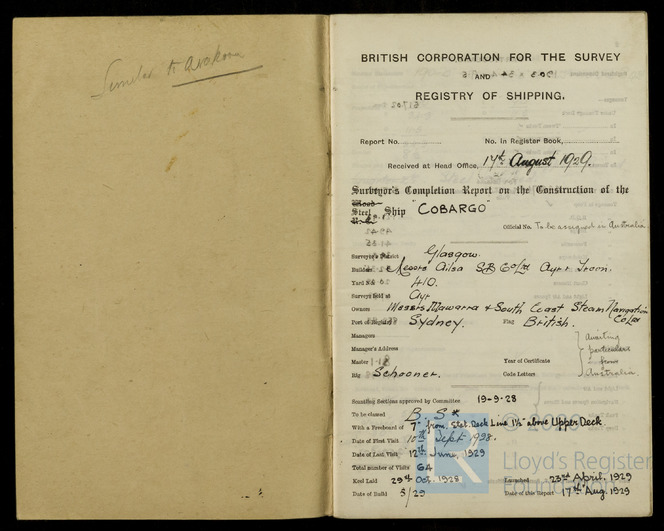 Similar to Arakoon
BRITISH CORPORATION FOR THE SURVEY
AND
REGISTRY OF SHIPPING.
Report No.
No. in Register Book,
Received at Head Office, 17th August 1929.
Surveyor's Completion Report on the Construction of the
Wood
Steel Ship "COBARGO"
Official No. To be assigned in Australia
Surveyor's District Glasgow.
Builders Messrs Ailsa SB Co Ltd Ayr & Troon.
Yard No. 410.
Surveys held at Ayr
Owners Messrs Illawarra & South Coast Steam Navigation Co Ltd
Port of Registry Sydney. Flag British.
Managers
Manager's Address
Master Year of Certificate
Rig Schooner. Code Letters
Awaiting particulars from Australia.
Scantling Sections approved by Committee 19-9-28
To be classed B. S*
With a Freeboard of 7" from Stat. Deck Line 1½" above Upper Deck
Date of First Visit 10th Sept 1928.
Date of Last Visit 12th June, 1929
Total number of Visits 64
Keel Laid 29th Oct. 1928 Launched 23rd April, 1929
Date of Build 5/29 Date of this Report 17th Aug. 1929
Lloyd's Register
Foundation